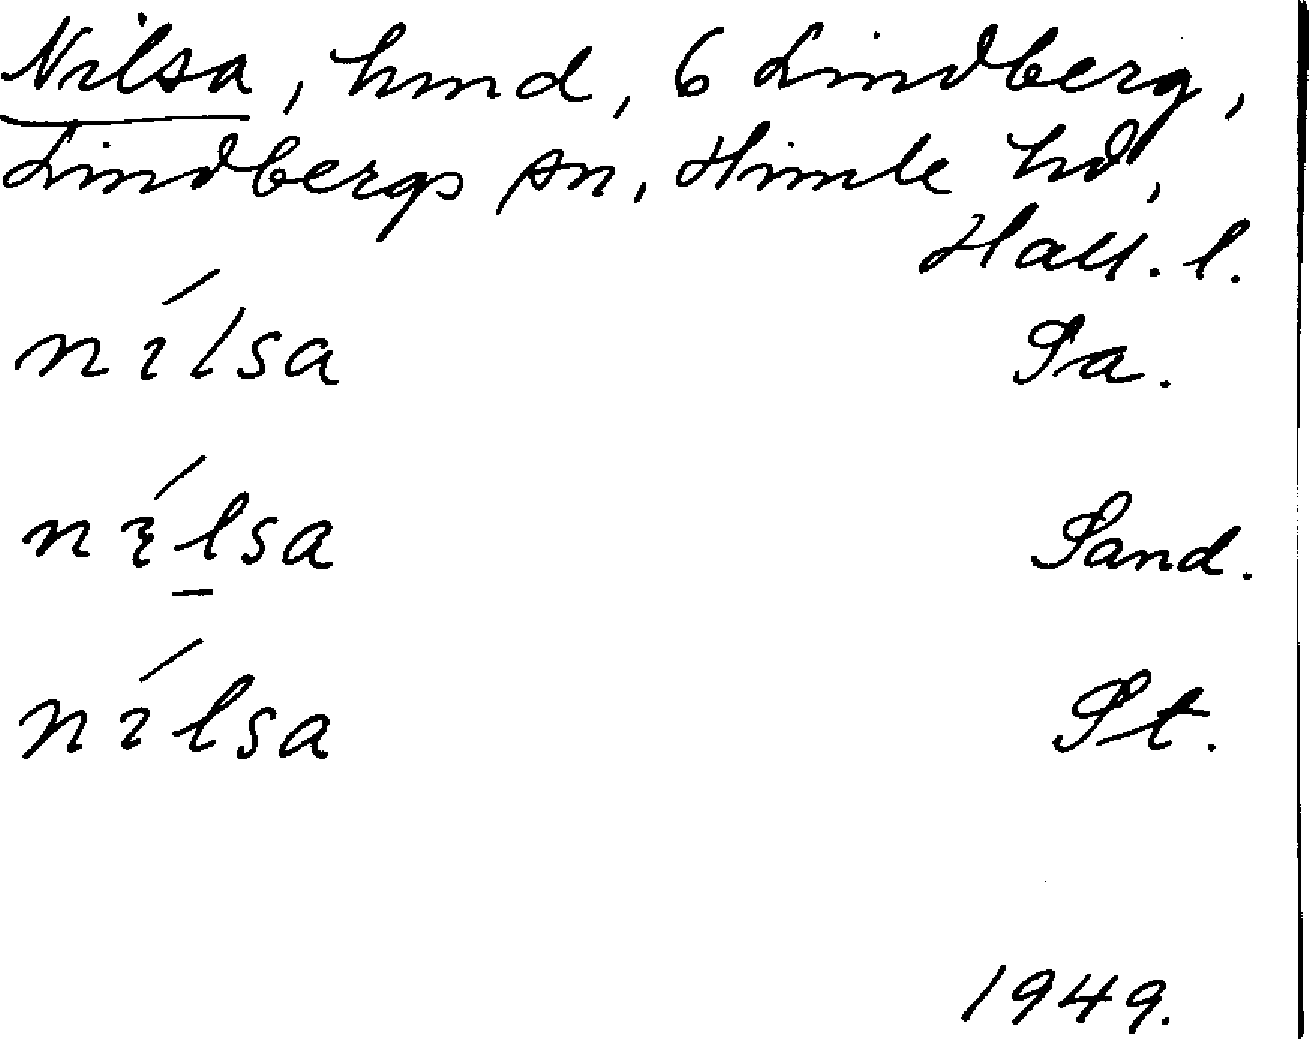 Nilsa, hmd, 6 Lindberg,
Lindbergs sn, Himle hd,
Hall. l.
nílsa Pa.
nílsa Sand.
nílsa St.
1949.